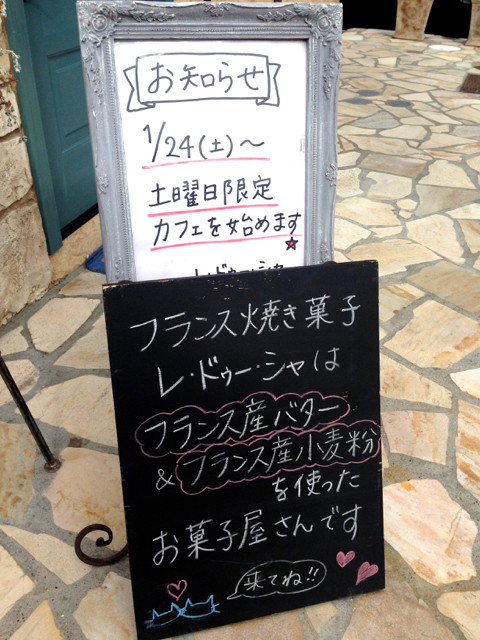 お知らせ
1/24(土)～
土曜日限定
カフェを始めます
レ・ドゥー・シャ
フランス焼き菓子
レ・ドゥー・シャは
フランス産バター
&フランス産小麦粉
を使った
お菓子屋さんです
来てね!!